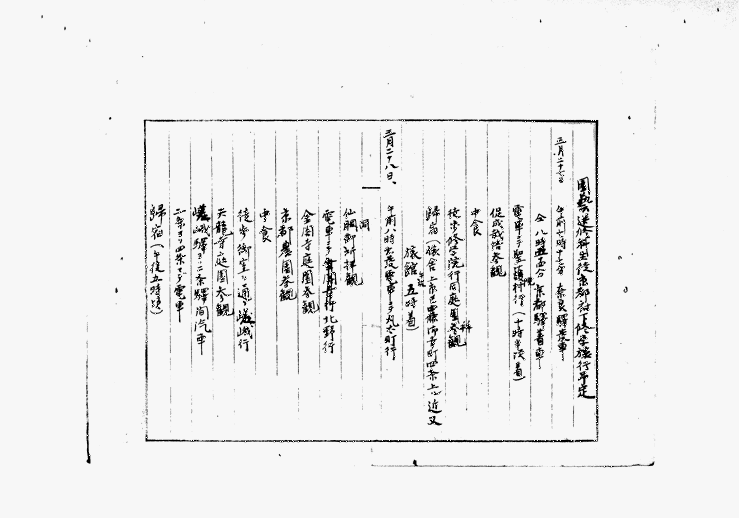 園藝選修科生徒京都府下修学旅行予定
三月二十七日 午前六時十二分 奈良驛乗車
仝 八時五十五分 京都驛着車
電車ニテ聖護院村行(十時半頃着)
促成栽培参観
中食
徒歩修学院行同庭園参観
歸宿(宿舎上京区 御幸町四条上ル近又
旅館 五時着)
三月二十八日、 午前八時出發電車ニテ丸太町行
仙洞御所拝観
電車ニテ北野行
金閣寺庭園参観
京都農園参観
中食
徒歩御室ヲ通リ嵯峨行
天龍寺庭園参観
嵯峨驛ヨリ二条驛間汽車
二条ヨリ四条マデ電車
歸宿(午後五時頃)